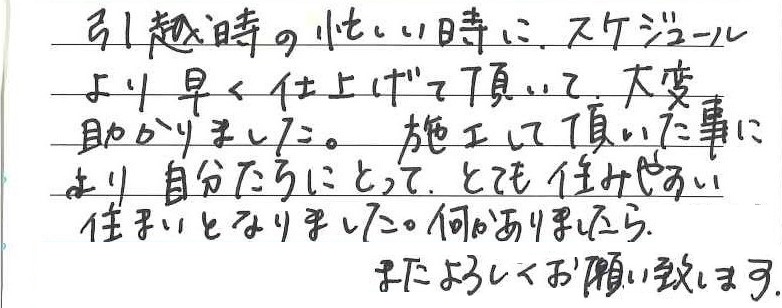 引越時の忙しい時に、スケジュール
より早く仕上げて頂いて、大変
助かりました。施工して頂いた事に
より自分たちにとって、とても住みやすい
住まいとなりました。何かありましたら、
またよろしくお願い致します。